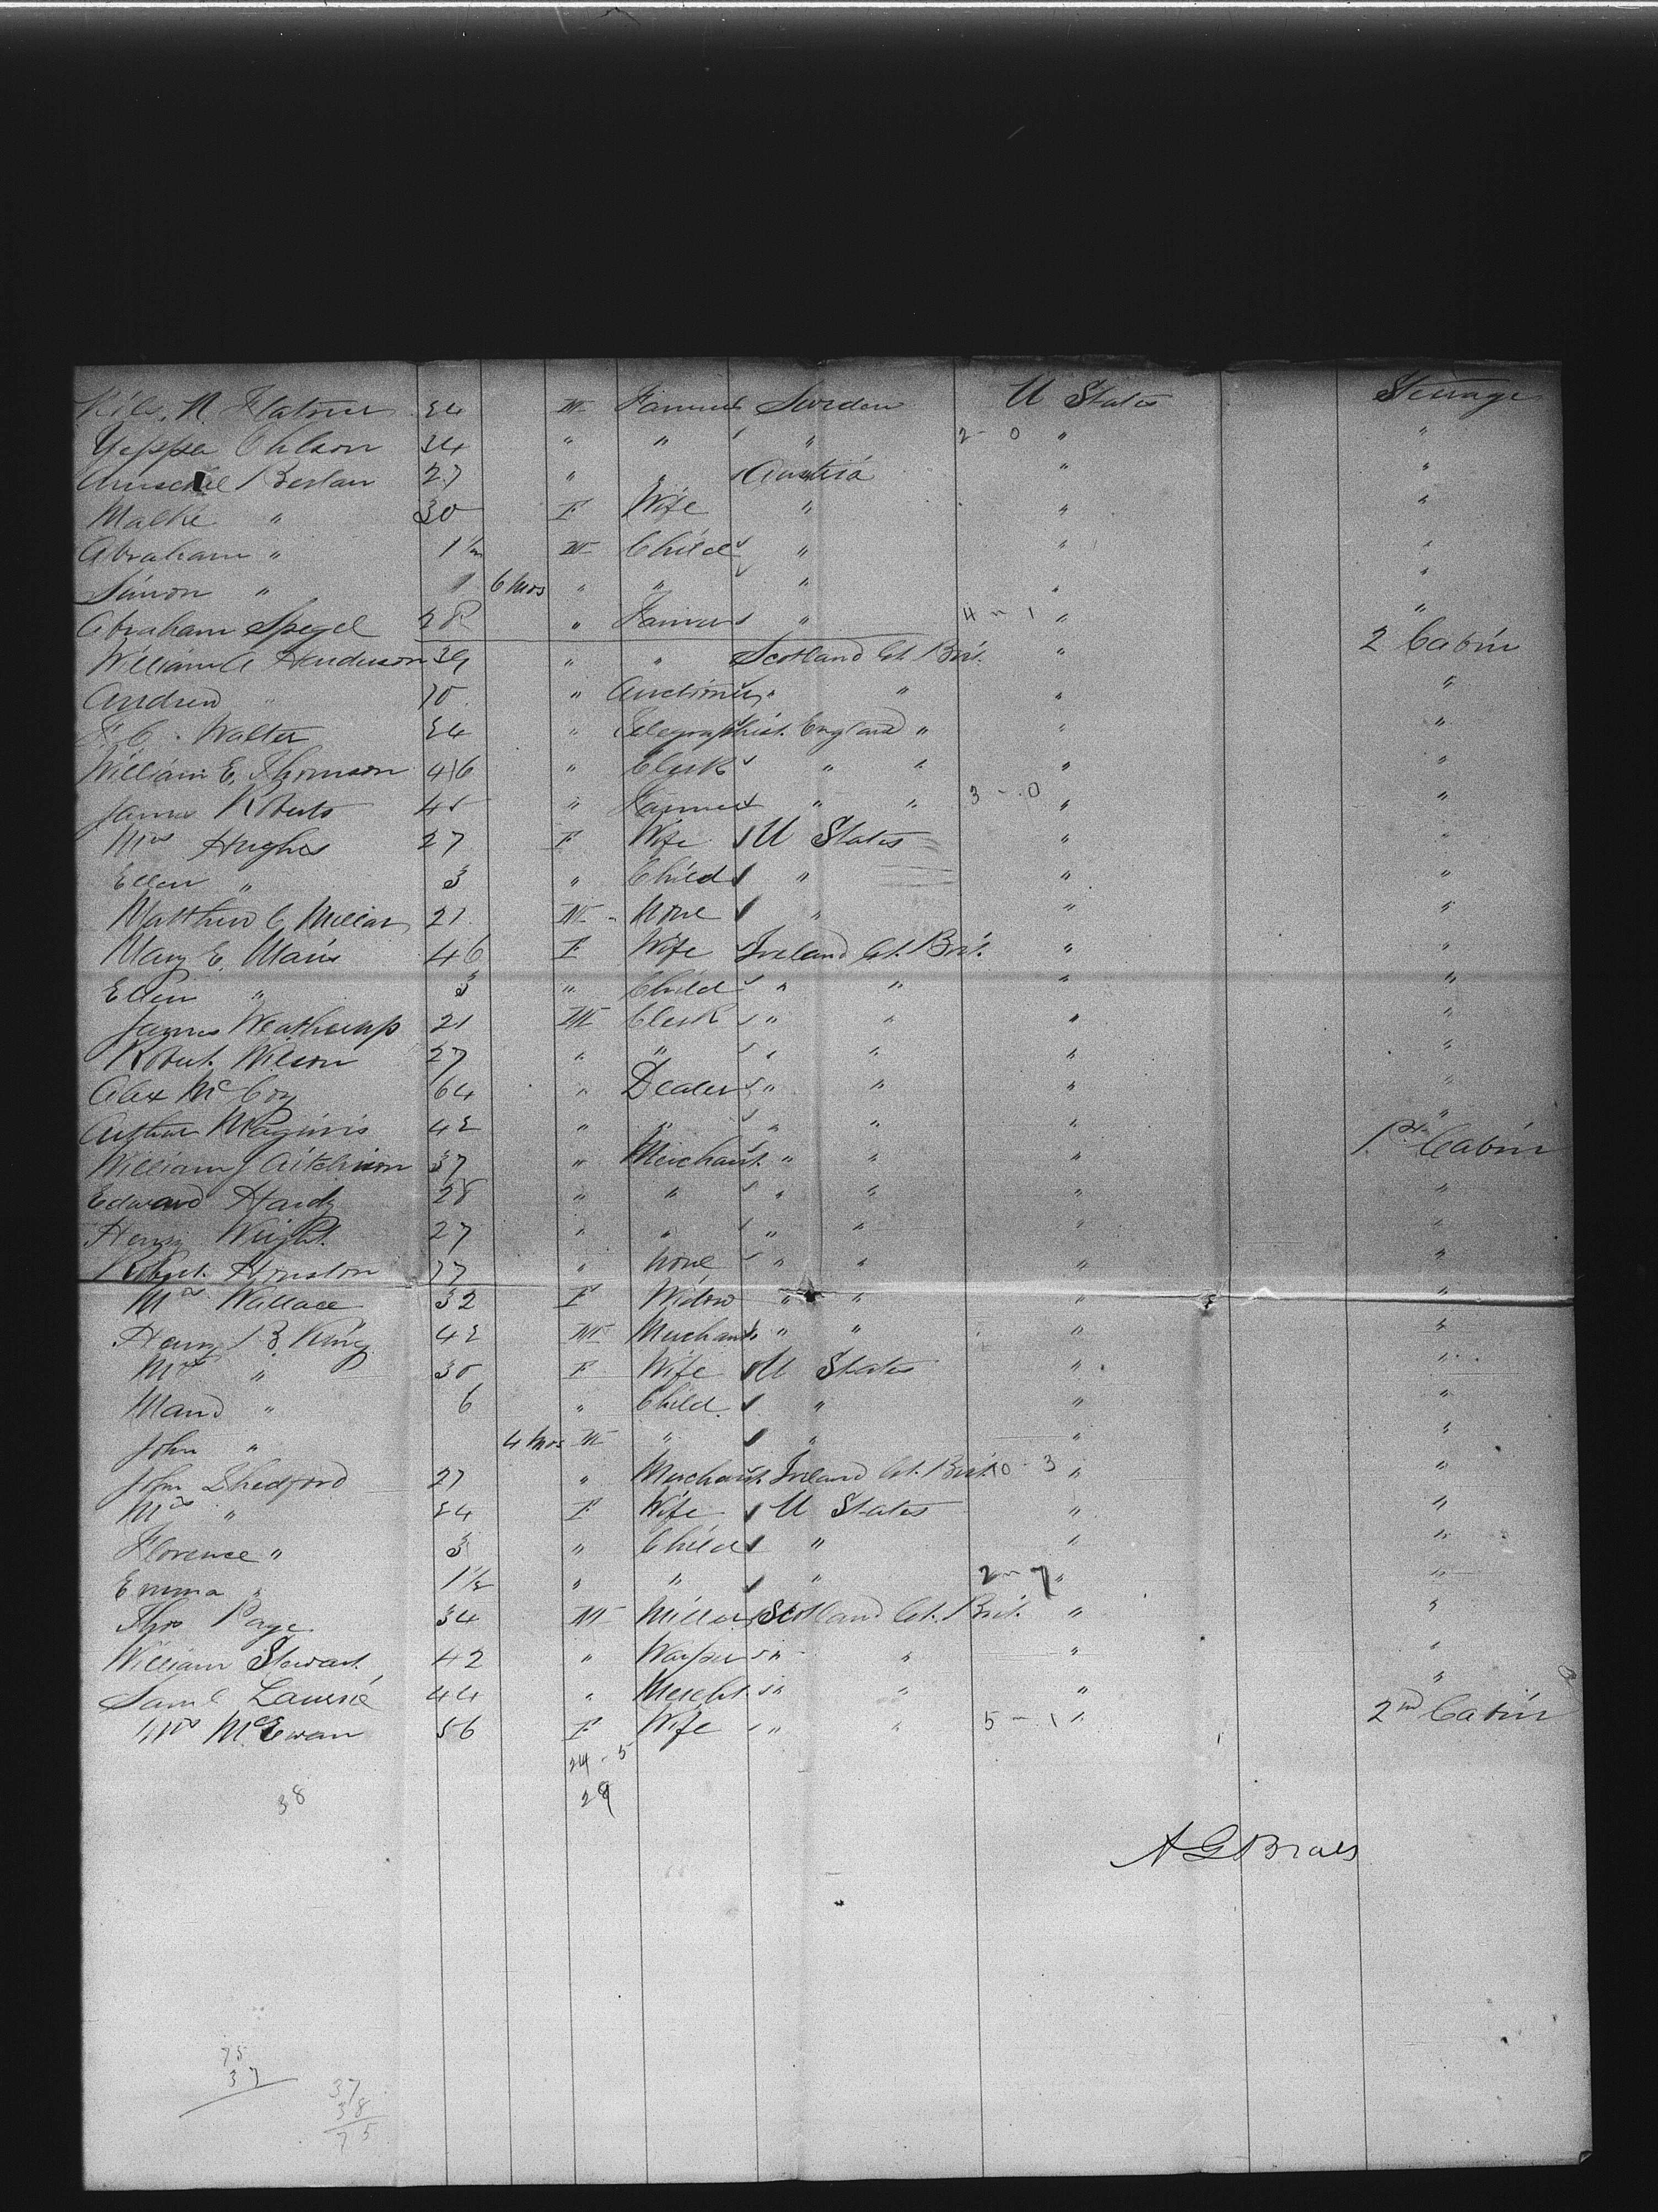 Nils N. 24 M Farmer Sweden U States Steerage
Yeppa Ohlson 34 " " " 2-0 " "
Berlau 27 " " Austria " "
Malke " 30 F Wife " " "
Abraham " 1 1/2 M Child " " "
Simon " 6 mos " " " " "
Abraham Spegel 28 " Farmer " 4-1 " "
William A Henderson 39 " " Scotland Gt. Brit. " 2 Cabin
Andrew " " " " " "
F. C. Walter 24 " Telegraphist England " " "
William E. Thomson 46 " Clerk " " " "
James Roberts 45 " Farmer " " 3-0 " "
Mrs Hughes 27 F Wife U States " "
Ellen " 3 " Child " " "
Matthew C Millar 21 M None " " "
Mary E. 46 F Wife Ireland Gt. Brit. " "
Ellen " 3 " Child " " " "
James 21 M Clerk " " " "
Robert Wilson 27 " " " " " "
Alex McCoy 64 " Dealer " " " "
Arthur Maginis 42 " " " " " "
William J Aitchison 37 " Merchant " " " 1st Cabin
Edward Hardy 28 " " " " " "
Henry Wright 27 " " " " " "
Robert Houston 17 " None " " " "
Mrs Wallace 32 F Widow " " " "
Henry B King 42 M Merchant " " " "
Mrs " 30 F Wife U States " "
Maud " 6 " Child " " "
John " 4 mos M " " " "
John Shedford 27 " Merchant Ireland Gt. Brit. 10-3 " "
Mrs " 24 F Wife U States " "
Florence " 3 " Child " " "
Emma " 1 1/2 " " " 2-7 " "
Thos Page 34 M Miller Scotland Gt. Brit. " "
William Stewart 42 " " " " "
Saml Lawrie 44 " Mercht. " " " "
Mrs McEwan 56 F Wife " " 5-1 " 2nd Cabin
24-5
38 29
75
37
37
38
75